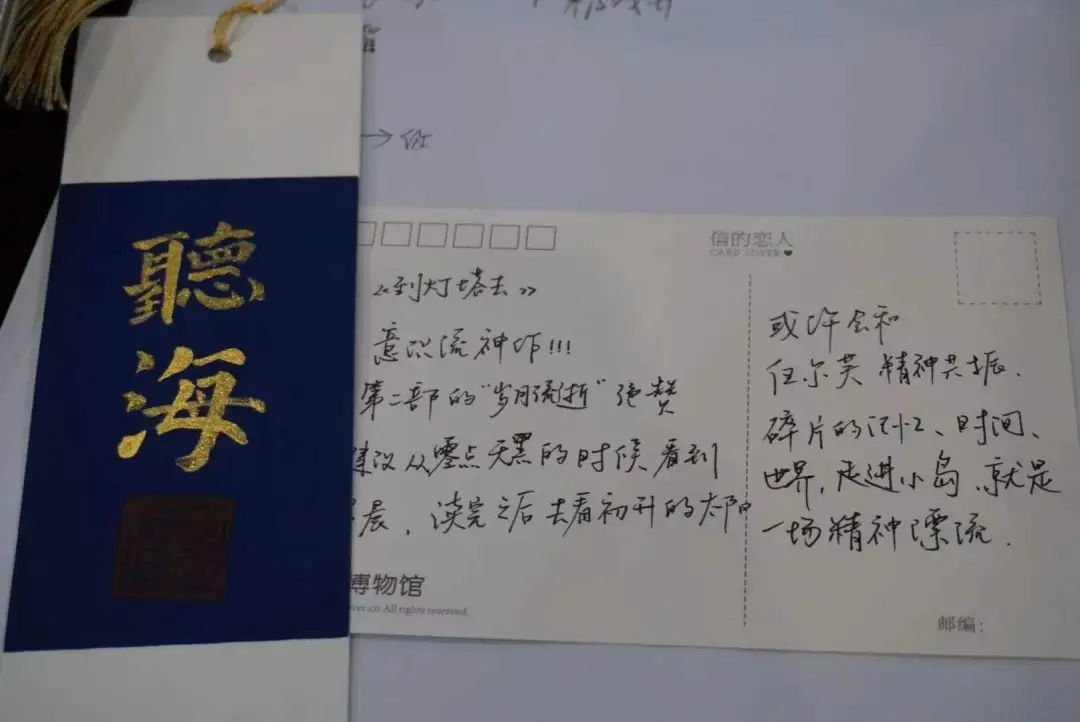 聽
海
信的恋人
CARD LOVER
《到灯塔去》
意识流神作!!!
第二部的“岁月流逝”绝赞
建议从零点天黑的时候看到
晨，读完之后去看初升的太阳
或许会和
伍尔芙精神共振.
碎片的记忆、时间、
世界，走进小岛，就是
一场精神漂流.
博物馆
ver.cn All rights reserved.
邮编：